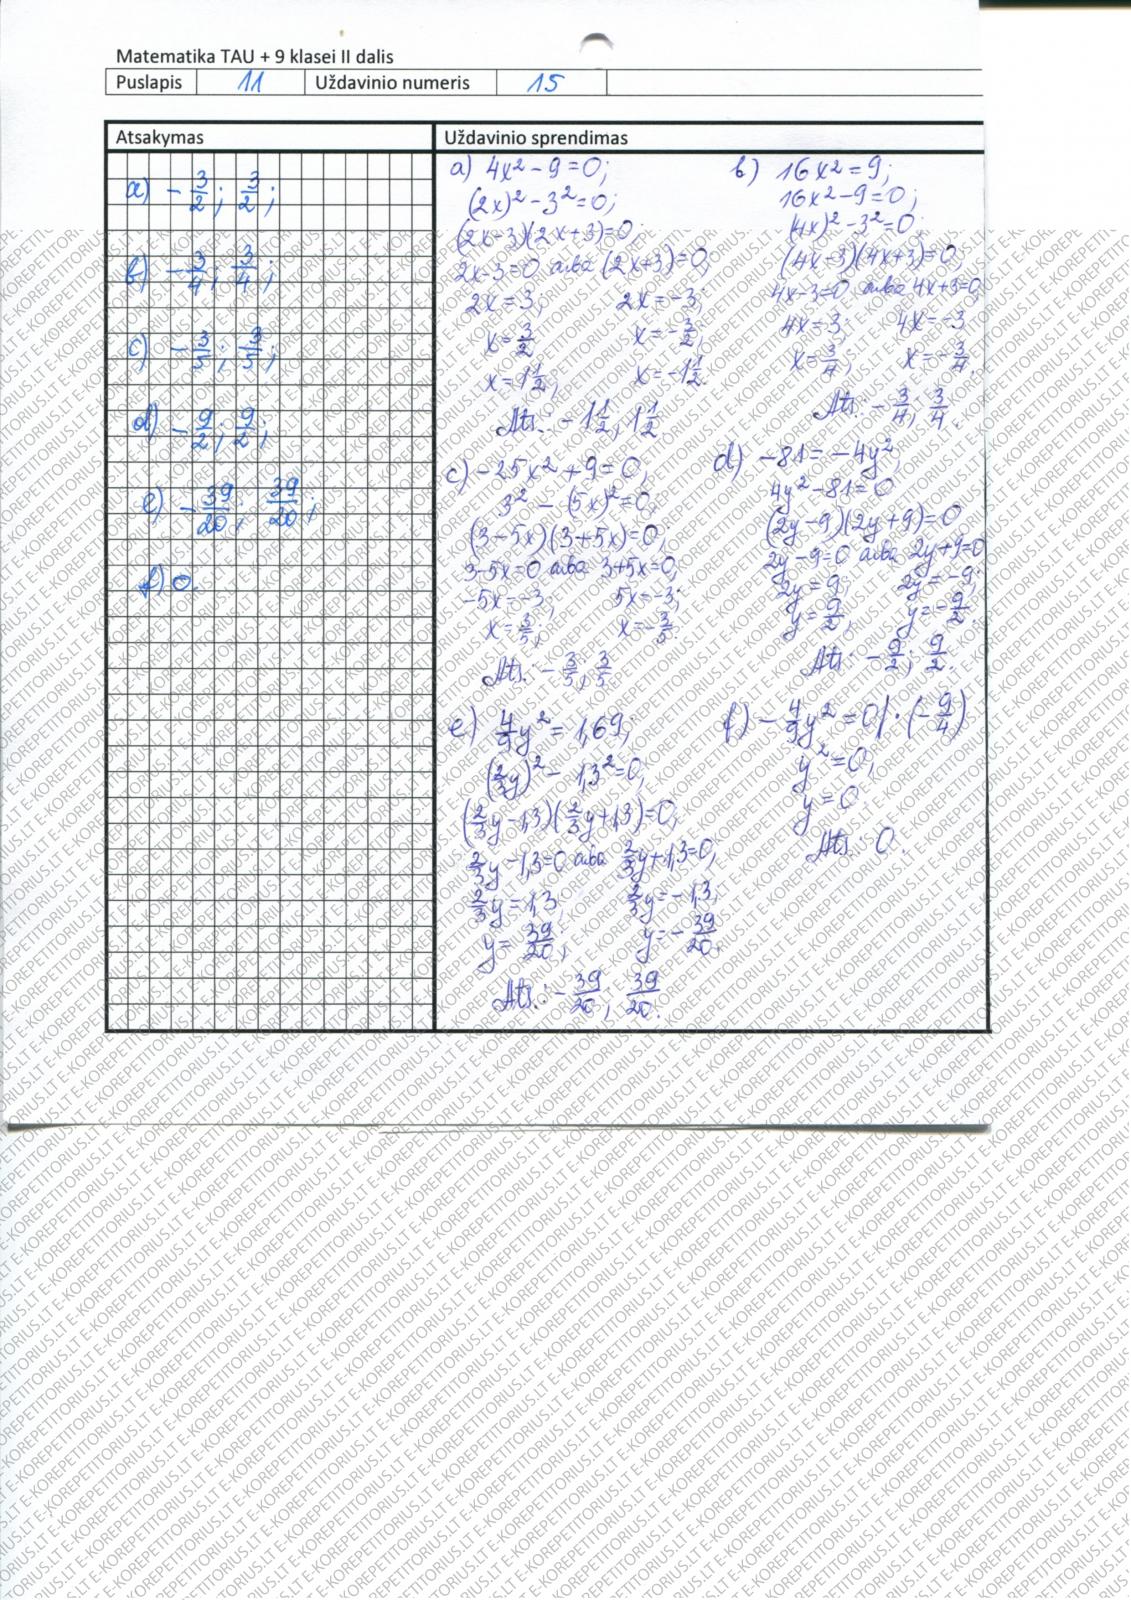 Matematika TAU + 9 klasei II dalis
Puslapis 11 Uždavinio numeris 15
Atsakymas
a) -3/2; 3/2;
b) -3/4; 3/4;
c) -3/5; 3/5;
d) -9/2; 9/2;
e) -39/20; 39/20;
f) 0.
Uždavinio sprendimas
a) 4x² - 9 = 0;
(2x)² - 3² = 0;
(2x-3)(2x+3)=0
2x-3=0 arba (2x+3)=0,
2x = 3; 2x = -3;
x = 3/2 x = -3/2;
x = 1 1/2; x = -1 1/2.
Ats.: -1 1/2, 1 1/2
b) 16x² = 9;
16x² - 9 = 0;
(4x)² - 3² = 0;
(4x-3)(4x+3)=0;
4x-3=0 arba 4x+3=0
4x = 3; 4x = -3
x = 3/4; x = -3/4.
Ats.: -3/4; 3/4.
c) -25x² + 9 = 0,
3² - (5x)² = 0,
(3-5x)(3+5x)=0,
3-5x=0 arba 3+5x=0,
-5x=-3; 5x=-3;
x = 3/5; x = -3/5.
Ats.: -3/5, 3/5
d) -81 = -4y²;
4y² - 81 = 0
(2y-9)(2y+9)=0
2y-9=0 arba 2y+9=0
2y = 9; 2y = -9;
y = 9/2; y = -9/2.
Ats: -9/2; 9/2.
e) 4/9y² = 1,69;
(2/3y)² - 1,3² = 0,
(2/3y-1,3)(2/3y+1,3)=0,
2/3y-1,3=0 arba 2/3y+1,3=0,
2/3y = 1,3, 2/3y = -1,3,
y = 39/20; y = -39/20.
Ats.: -39/20, 39/20.
f) -4/9y² = 0 /·(-9/4)
y² = 0,
y = 0
Ats: 0.
E-KOREPETITORIUS.LT